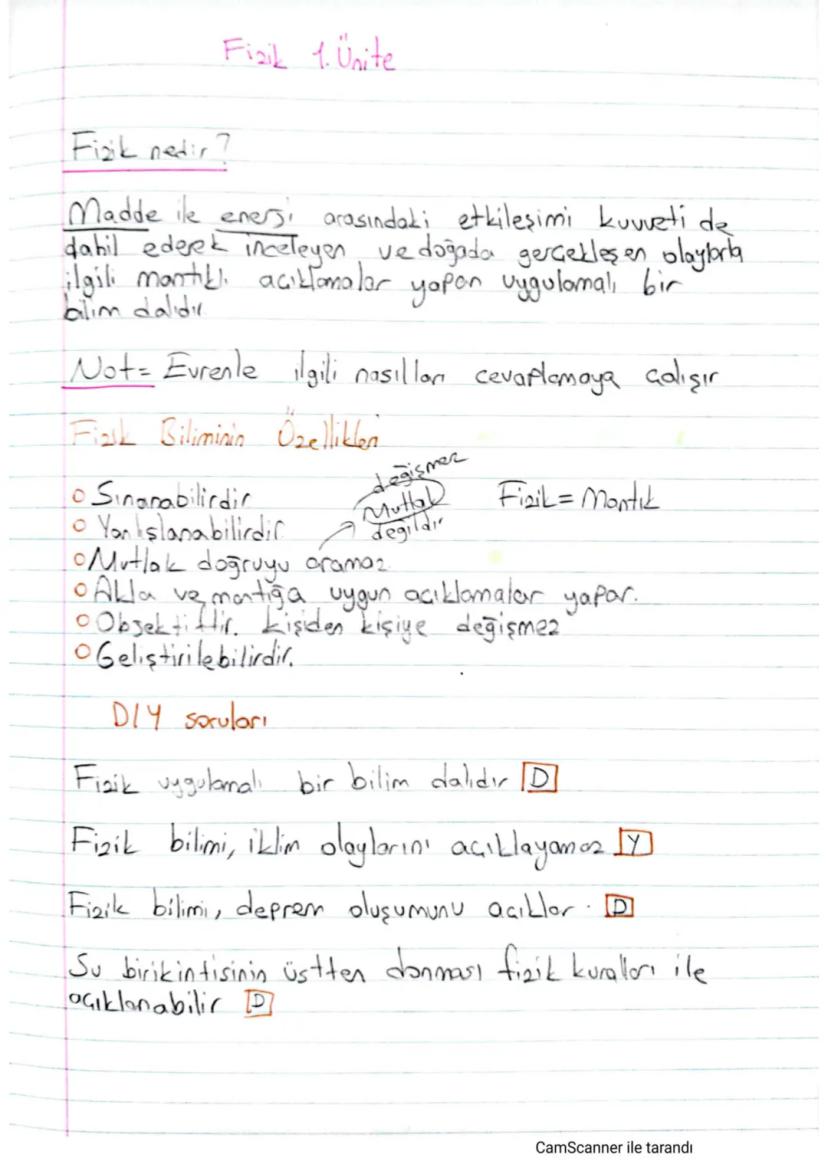 Fizik 1. Ünite
Fizik nedir?
Madde ile enerji arasındaki etkileşimi kuvveti de
dahil ederek inceleyen ve doğada gerçekleşen olaylarla
ilgili mantıklı açıklamalar yapan uygulamalı bir
bilim dalıdır
Not= Evrenle ilgili nasılları cevaplamaya çalışır
Fizik Biliminin Özellikleri
○ Sınanabilirdir
○ Yanlışlanabilirdir
○ Mutlak doğruyu aramaz
○ Akla ve mantığa uygun açıklamalar yapar.
○ Objektiftir. kişiden kişiye değişmez
○ Geliştirilebilirdir.
değişmez
Mutlak
değildir
Fizik = Mantık
D/Y soruları
Fizik uygulamalı bir bilim dalıdır D
Fizik bilimi, iklim olaylarını açıklayamaz Y
Fizik bilimi, deprem oluşumunu açıklar. D
Su birikintisinin üstten donması fizik kuralları ile
açıklanabilir D
CamScanner ile tarandı